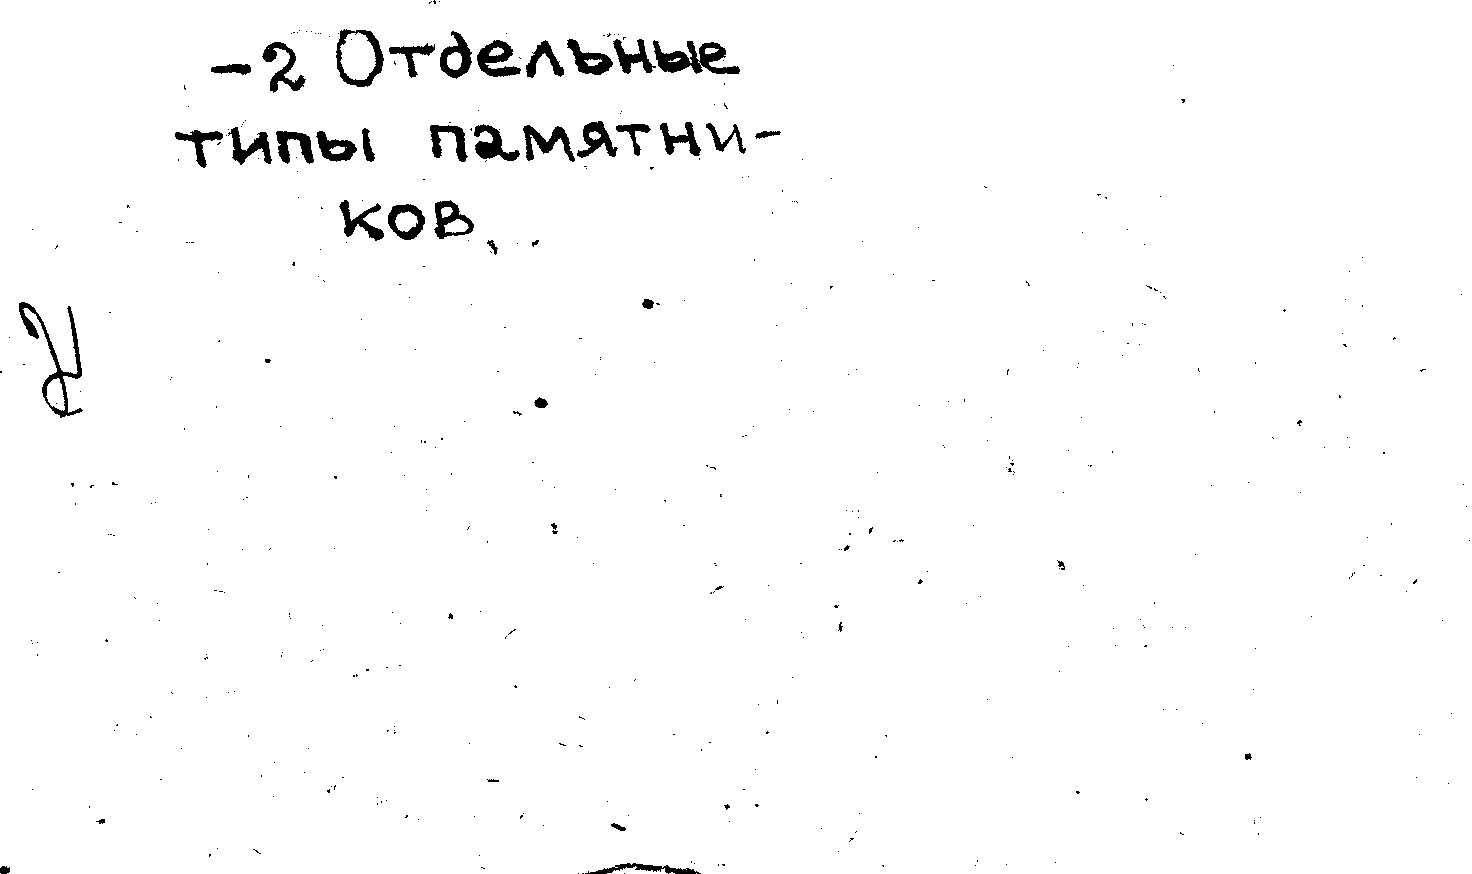 -2 Отдельные
типы памятни-
ков